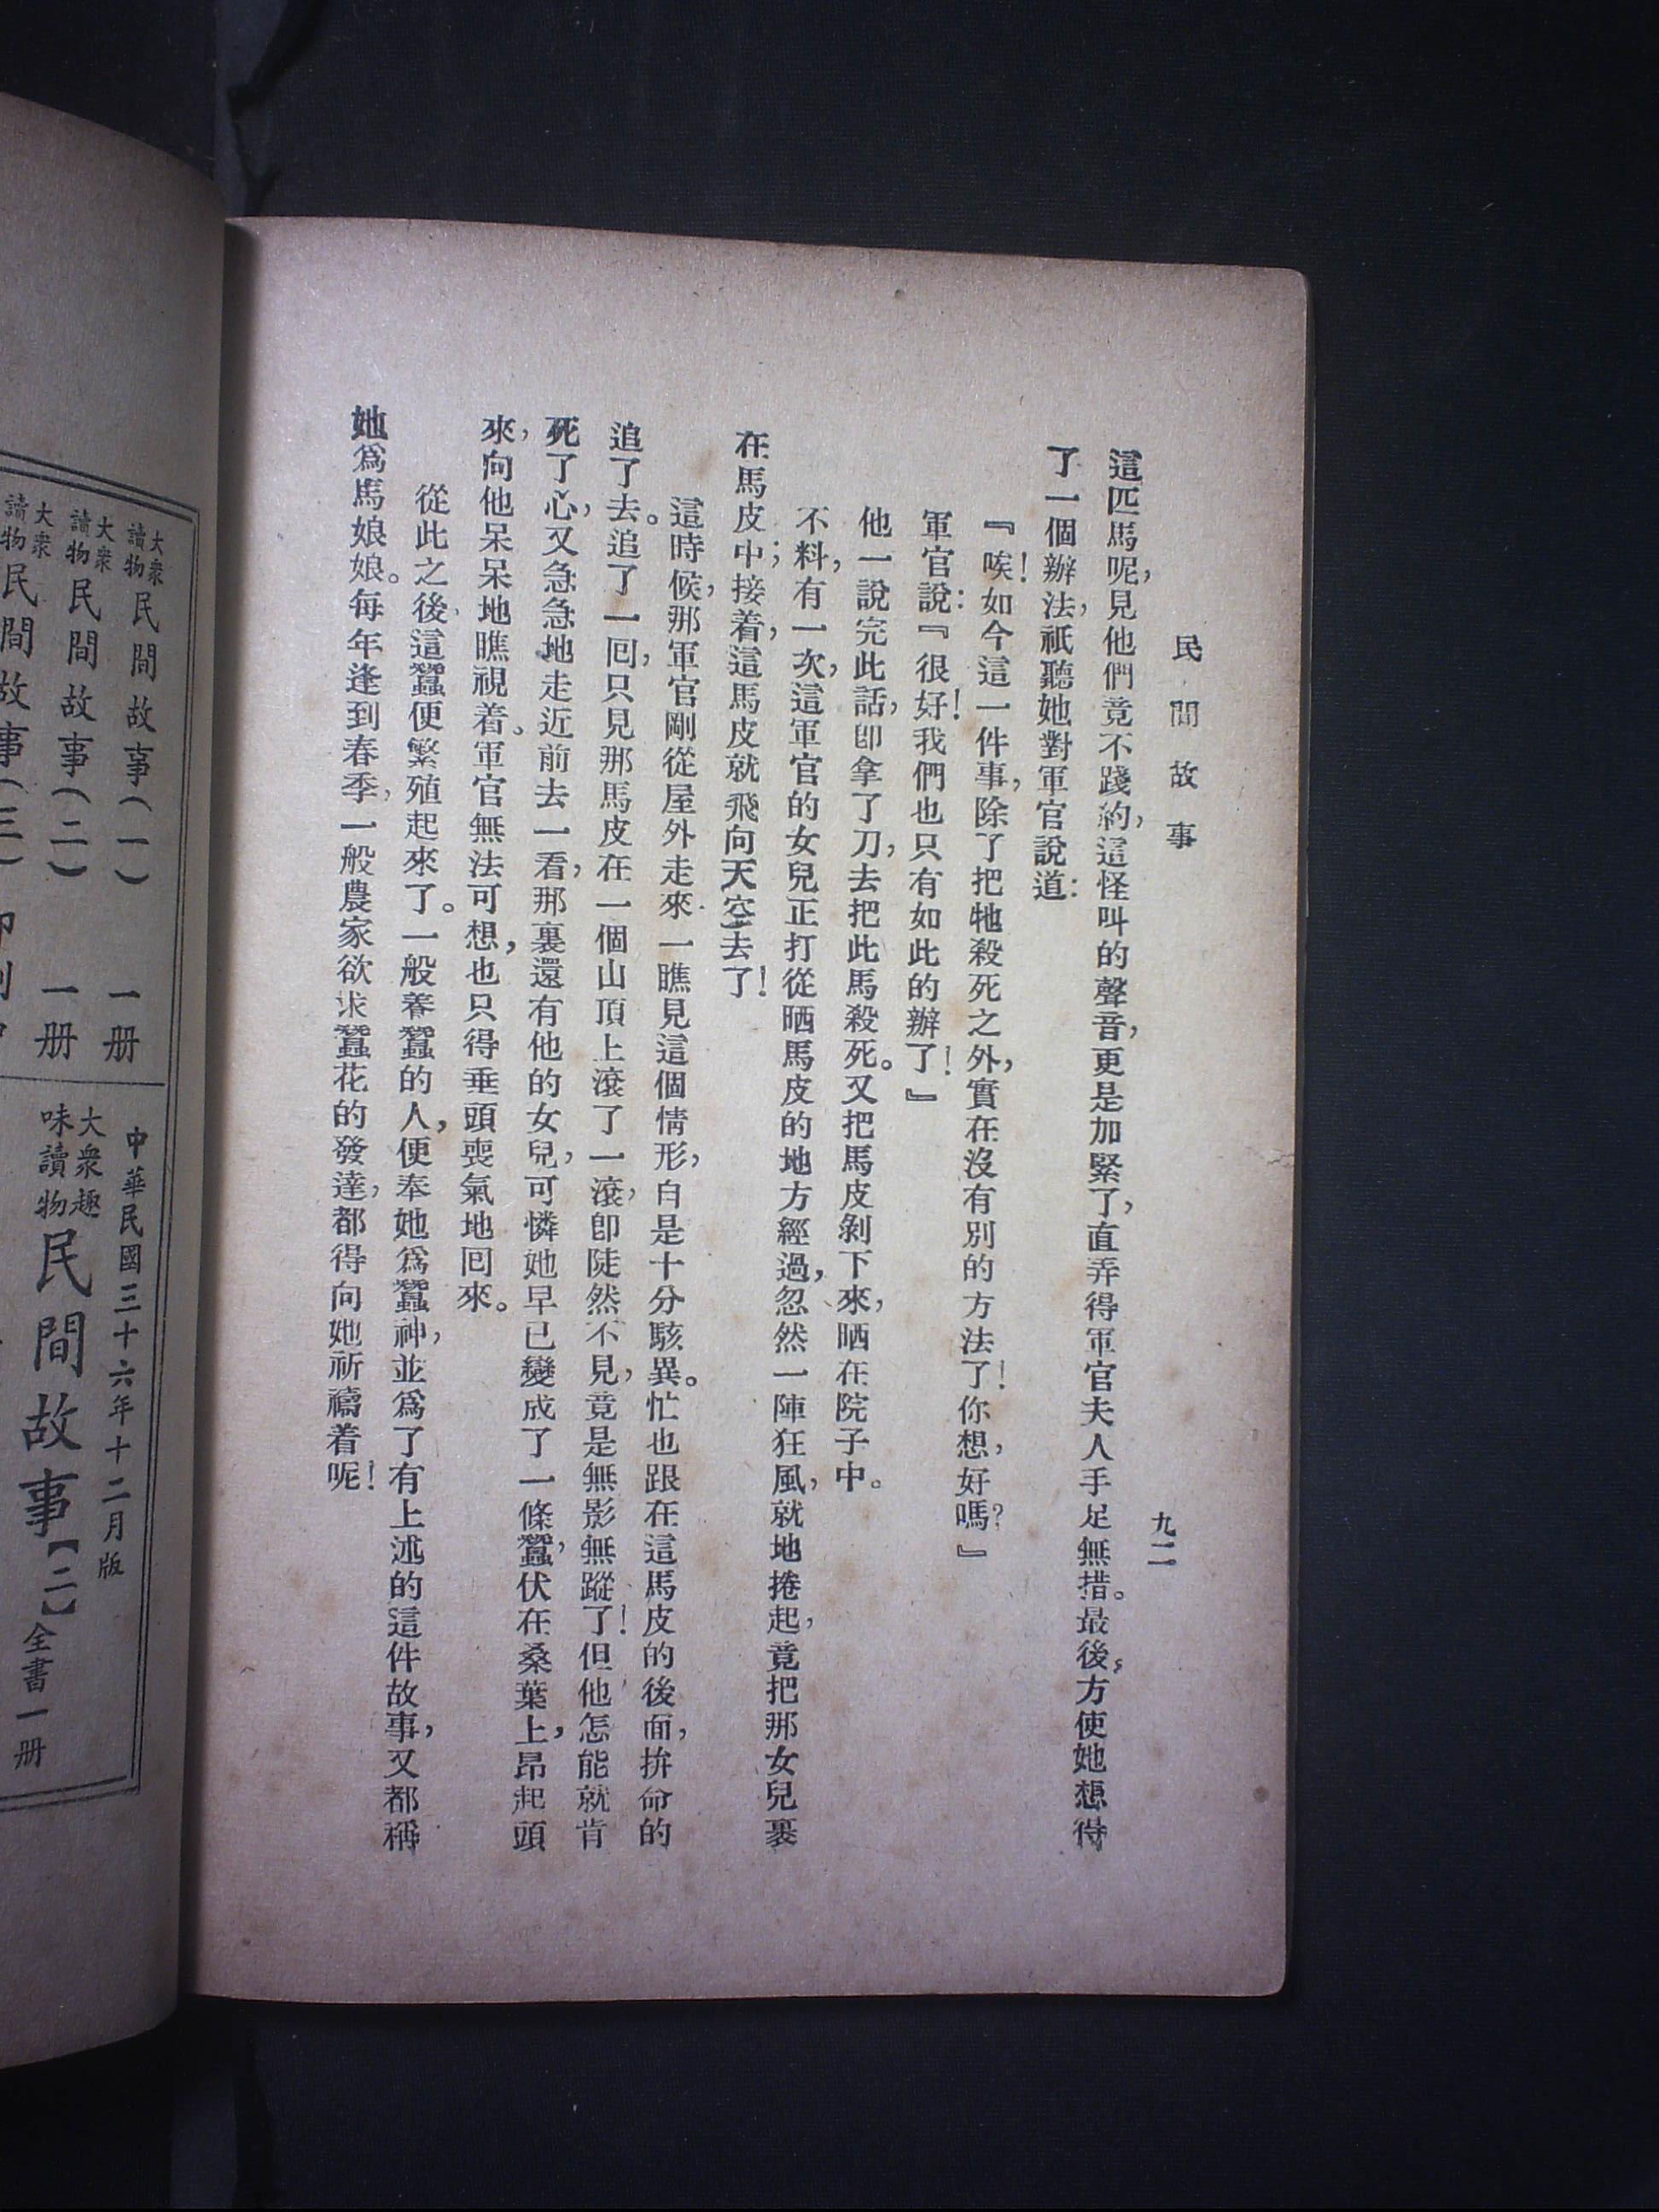 民間故事
九二
這匹馬呢，見他們竟不踐約，這怪叫的聲音，更是加緊了，直弄得軍官夫人手足無措。最後，方使她想得
了一個辦法，祇聽她對軍官說道：
『唉！如今這一件事，除了把牠殺死之外，實在沒有別的方法了！你想，好嗎？』
軍官說：『很好！我們也只有如此的辦了！』
他一說完此話，卽拿了刀，去把此馬殺死。又把馬皮剝下來，晒在院子中。
不料，有一次，這軍官的女兒正打從晒馬皮的地方經過，忽然一陣狂風，就地捲起，竟把那女兒裹
在馬皮中；接着，這馬皮就飛向天空去了！
這時候，那軍官剛從屋外走來，一瞧見這個情形，自是十分駭異。忙也跟在這馬皮的後面，拚命的
追了去。追了一囘，只見那馬皮在一個山頂上滾了一滾，卽陡然不見，竟是無影無蹤了！但他怎能就肯
死了心，又急急地走近前去一看，那裏還有他的女兒，可憐她早已變成了一條蠶，伏在桑葉上，昂起頭
來，向他呆呆地瞧視着。軍官無法可想，也只得垂頭喪氣地囘來。
從此之後，這蠶便繁殖起來了。一般養蠶的人，便奉她爲蠶神，並爲了有上述的這件故事，又都稱
她爲馬娘娘。每年逢到春季，一般農家欲求蠶花的發達，都得向她祈禱着呢！
大衆讀物民間故事（一）一册
大衆讀物民間故事（二）一册
大衆讀物民間故事（三）
中華民國三十六年十二月版
大衆趣味讀物民間故事【二】全書一册